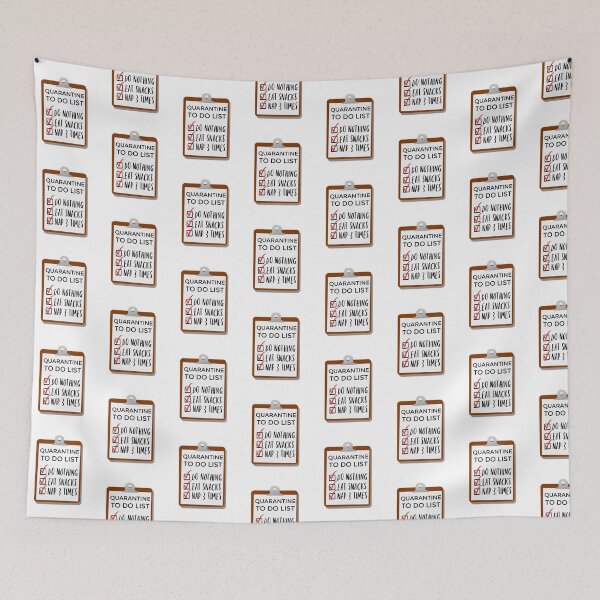 QUARANTINE
TO DO LIST
DO NOTHING
EAT SNACKS
NAP 3 TIMES